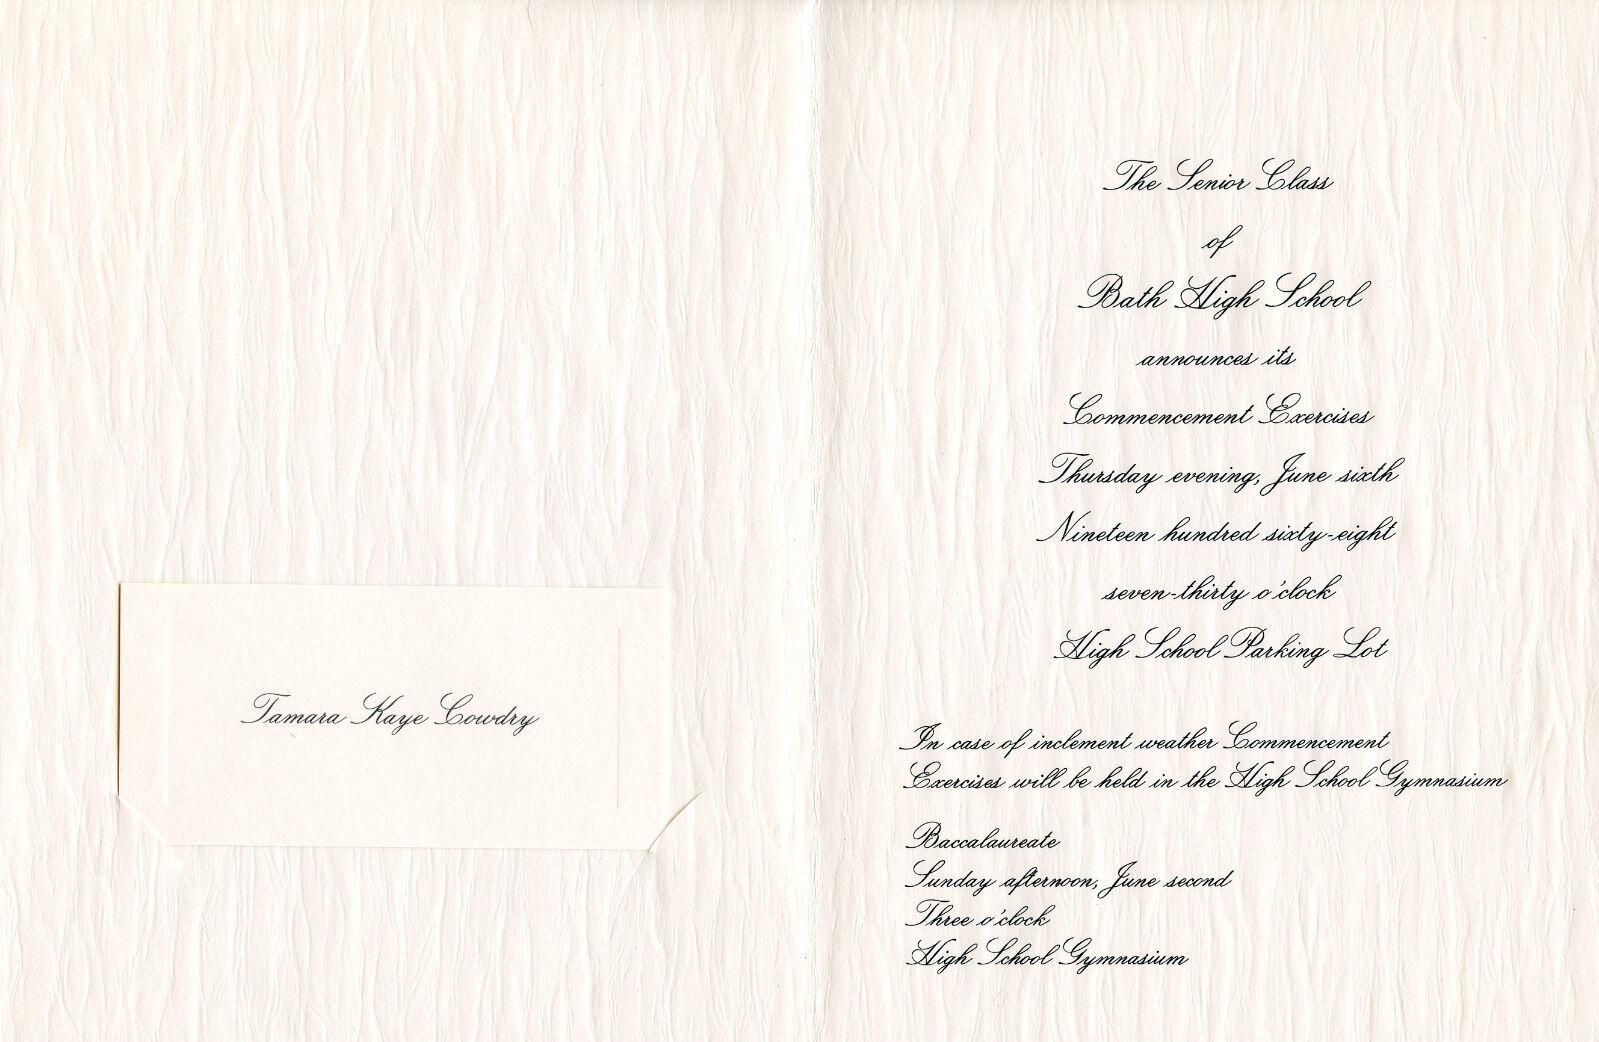 Tamara Kaye Cowdry
The Senior Class
of
Bath High School
announces its
Commencement Exercises
Thursday evening, June sixth
Nineteen hundred sixty-eight
seven-thirty o'clock
High School Parking Lot
In case of inclement weather Commencement
Exercises will be held in the High School Gymnasium
Baccalaureate
Sunday afternoon, June second
Three o'clock
High School Gymnasium